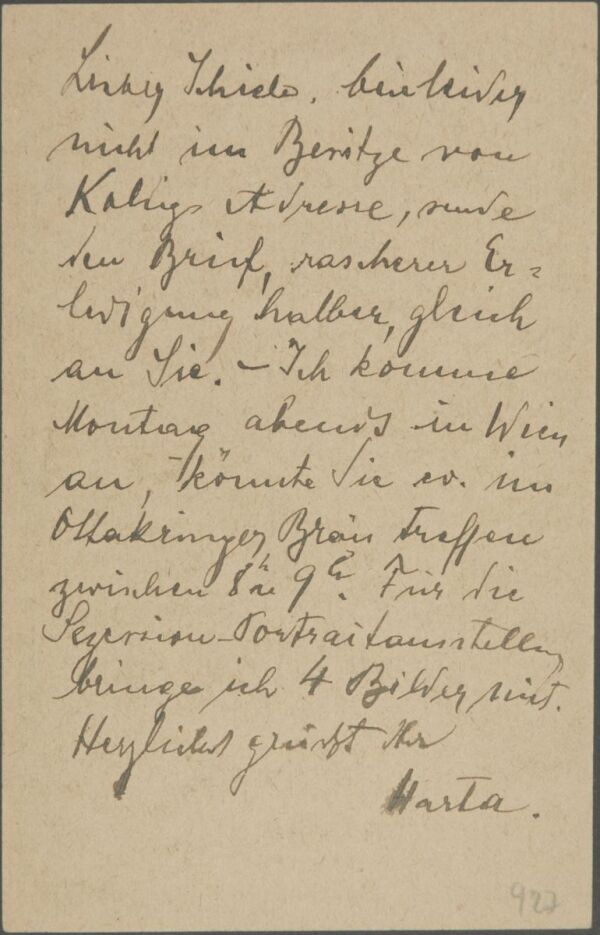 Lieber Schiele, bin leider
nicht im Besitze von
Koligs Adresse, sende
den Brief, rascherer Er=
ledigung halber, gleich
an Sie. – Ich komme
Montag abends in Wien
an, – könnte Sie ev. im
Ottakringer Bräu treffen
zwischen 8 u 9h. Für die
Sezession-Portraitausstellung
bringe ich 4 Bilder mit.
Herzlichst grüsst Ihr
Harta.
927